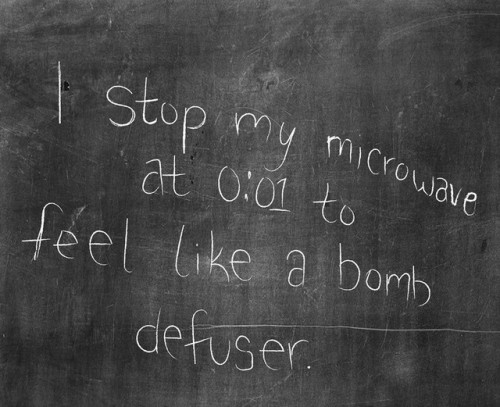 I stop my microwave
at 0:01 to
feel like a bomb
defuser.